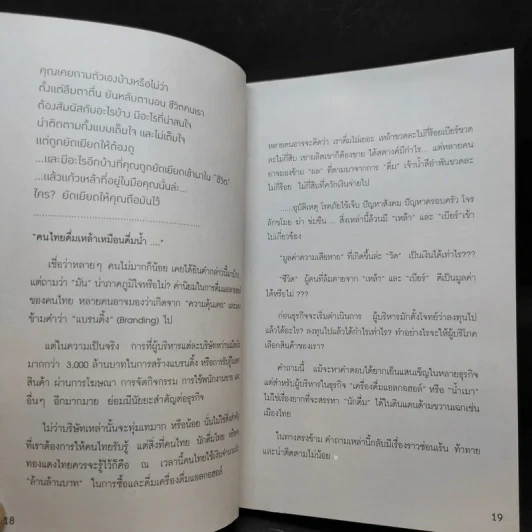 คุณเคยถามตัวเองบ้างหรือไม่ว่า
ตั้งแต่ลืมตาตื่น ยันหลับตานอน ชีวิตคนเรา
ต้องสัมผัสกับอะไรบ้าง มีอะไรที่น่าสนใจ
น่าติดตามทั้งแบบเต็มใจ และไม่เต็มใจ
แต่ถูกยัดเยียดให้ต้องดู
...และมีอะไรอีกบ้างที่คุณถูกยัดเยียดเข้ามาใน "ชีวิต"
...แล้วแก้วเหล้าที่อยู่ในมือคุณนั่นล่ะ...
ใคร? ยัดเยียดให้คุณถือมันไว้
"คนไทยดื่มเหล้าเหมือนดื่มน้ำ ...."
เชื่อว่าหลายๆ คนไม่มากก็น้อย เคยได้ยินคำกล่าวนี้มาบ้าง
แต่ถามว่า "มัน" น่าภาคภูมิใจหรือไม่? ค่านิยมในการดื่มแอลกอฮอล์
ของคนไทย หลายคนอาจมองว่าเกิดจาก "ความคุ้นเคย"
ข้ามคำว่า "แบรนดิ้ง" (Branding) ไป
แต่ในความเป็นจริง การที่ผู้บริหารแต่ละบริษัททุ่มเงิน
มากกว่า 3,000 ล้านบาทในการสร้างแบรนดิ้ง หรือการรับรู้ในตรา
สินค้า ผ่านการโฆษณา การจัดกิจกรรม การใช้พนักงานขาย และ
อื่นๆ อีกมากมาย ย่อมมีนัยยะสำคัญต่อธุรกิจ
ไม่ว่าบริษัทเหล่านั้นจะทุ่มเทมาก หรือน้อย นั่นไม่ใช่สิ่งสำคัญ
ที่เราต้องการให้คนไทยรับรู้ แต่สิ่งที่คนไทย นักดื่มไทย
ทองแดงไทยควรจะรู้ไว้ก็คือ ณ เวลานี้คนไทยใช้เงินจำนวน
"ล้านล้านบาท" ในการซื้อและดื่มเครื่องดื่มแอลกอฮอล์
18
หลายคนอาจจะคิดว่า เราดื่มไม่เยอะ เหล้าขวดละไม่กี่ร้อยเบียร์ขวด
ละไม่กี่สิบ เขาผลิตเขาก็ต้องขาย ได้สตางค์มีกำไร... แต่หลายคน
อาจมองข้าม "ผล" ที่ตามมาจากการ "ดื่ม" เจ้าน้ำสีอำพันขวดละ
ไม่กี่ร้อย ไม่กี่สิบที่ควักเงินจ่ายไป
......อุบัติเหตุ โรคภัยไข้เจ็บ ปัญหาสังคม ปัญหาครอบครัว โจร
ลักขโมย ฆ่า ข่มขืน ... สิ่งเหล่านี้ล้วนมี "เหล้า" และ "เบียร์" เข้า
ไปเกี่ยวข้อง
"มูลค่าความเสียหาย" ที่เกิดขึ้นล่ะ "วัด" เป็นเงินได้เท่าไร???
"ชีวิต" ผู้คนที่ล้มตายจาก "เหล้า" และ "เบียร์" ตีเป็นมูลค่า
ได้หรือไม่ ???
ก่อนธุรกิจจะเริ่มดำเนินการ ผู้บริหารมักตั้งโจทย์ว่าลงทุนไป
แล้วได้อะไร? ลงทุนไปแล้วได้กำไรเท่าไร? ทำอย่างไรจะให้ผู้บริโภค
เลือกสินค้าของเรา?
คำถามนี้ แม้จะหาคำตอบได้ยากเอนแสนเข็ญในหลายธุรกิจ
แต่สำหรับผู้บริหารในธุรกิจ "เครื่องดื่มแอลกอฮอล์" หรือ "น้ำเมา"
ไม่ใช่เรื่องยากที่จะสรรหา "นักดื่ม" ได้ในดินแดนด้ามขวานเฉกเช่น
เมืองไทย
ในทางตรงข้าม คำถามเหล่านี้กลับมีเรื่องราวซ่อนเร้น ท้าทาย
และน่าติดตามไม่น้อย
19